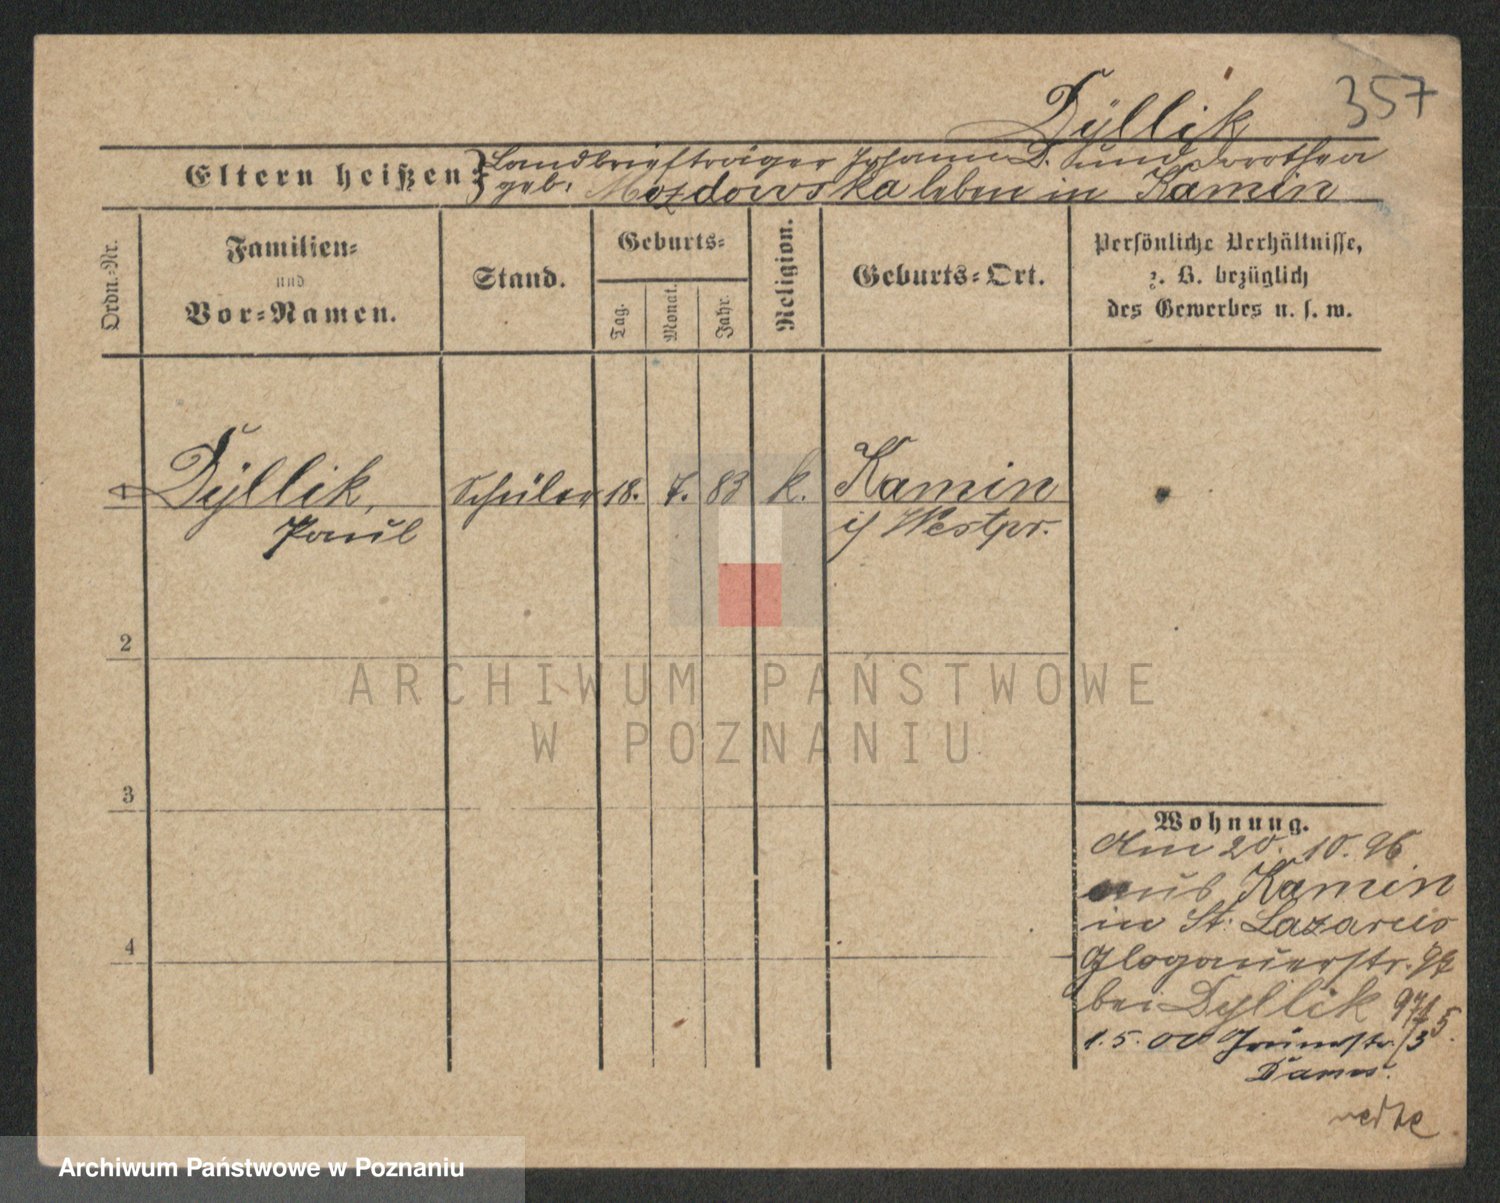 357
Dÿllik
Eltern heißen:
Landbriefträger Johann D. und Dorothea
geb. Mozdowska leben in Kamin
Ordn.-Nr.
Familien-
und
Vor-Namen.
Stand.
Geburts-
Tag.
Monat.
Jahr.
Religion.
Geburts-Ort.
Persönliche Verhältnisse,
z. B. bezüglich
des Gewerbes u. s. w.
1 Dÿllik, Schüler 18. 7. 83 k. Kamin
Paul i/ Westpr.
2
3
4
ARCHIWUM PAŃSTWOWE
W POZNANIU
Wohnung.
Am 20. 10. 96
aus Kamin
in St. Lazarus
Glogauerstr.
bei Dyllik
1. 5. 00 Grünestr.
Archiwum Państwowe w Poznaniu